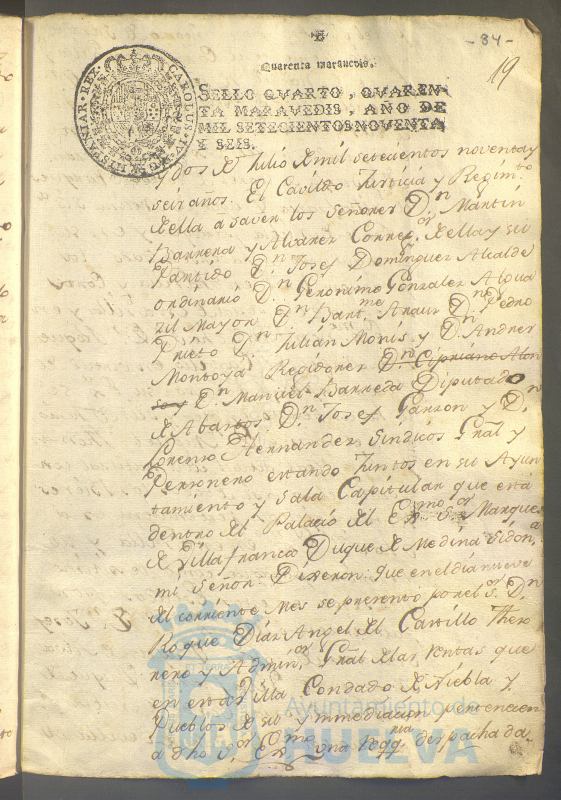 - 84 -
19
Quarenta marauedis.
SELLO QVARTO, QVAREN-
TA MARAVEDIS, AÑO DE
MIL SETECIENTOS NOVENTA
Y SEIS.
CAROLUS IV
HISPANIAR REX
y dos de Julio de mil setecientos noventa y
seis años. El Cavildo Justicia y Regimto
de ella a saver los Señores Dn Martin
Barrera y Alvarez Correxor de ella y su
Partido Dn Josef Dominguez Alcalde
ordinario Dn Geronimo Gonzalez Algua
zil Mayor Dn Barte Dn Pedro
Prieto Dn Julian Monis y Dn Andres
Montoya Regidores Dn Cipriano Alon
so y Dn Manuel Barreda Diputado
de Abastos Dn Josef Garzon y Dn
Lorenzo Hernandez Sindicos Gral y
Personero estando Juntos en su Ayun
tamiento y Sala Capitular que está
dentro del Palacio del Exmo Sor Marques
de Villafranca Duque de Medina Sidona
mi Señor: Dixeron: que en el dia nueve
del corriente Mes se presentó por el Sor Dn
Roque Diaz Angel del Castillo Theso
rero y Adminor Gral de las Rentas que
en esta Villa Condado de Niebla y
Pueblos de su ymmediacion pertenecen
a dho Sor Exmo una despachada
Ayuntamiento de
HUELVA